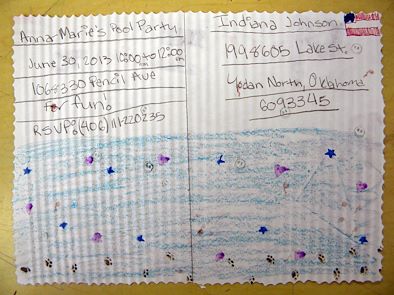 Anna-Marie's Pool Party
June 30, 2013 10:00am to 12:00am
1066330 Pencil Ave
for fun!
RSVP: (406) 111-220235
Indiana Johnson
1998605 Lake st.
Yodan North, Oklahoma
6093345